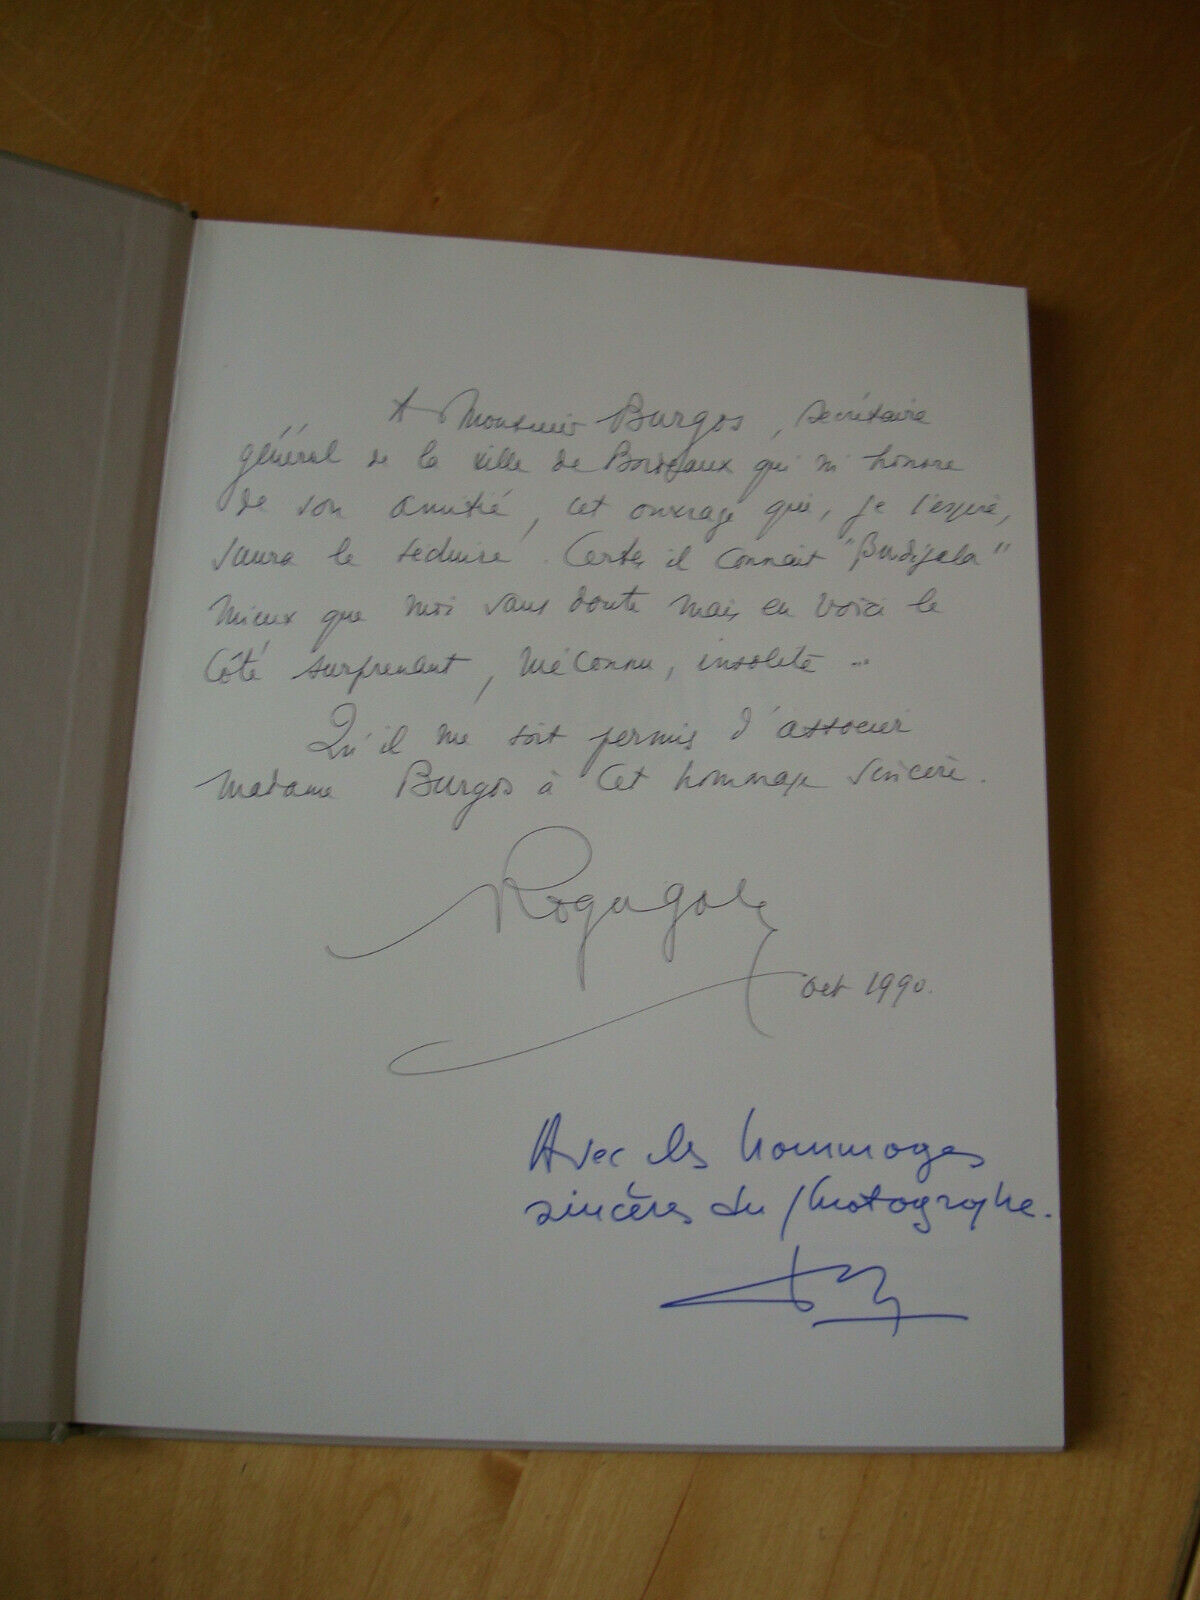 A Monsieur Burgos, secrétaire
général de la ville de Bordeaux qui m'honore
de son amitié, cet ouvrage qui, je l'espère,
saura le séduire. Certes il connait "Burdigala"
mieux que moi sans doute mais en voici le
côté surprenant, méconnu, insolite ...
Qu'il me soit permis d'associer
Madame Burgos à cet hommage sincère.
oct 1990.
Avec les hommages
sincères du photographe.